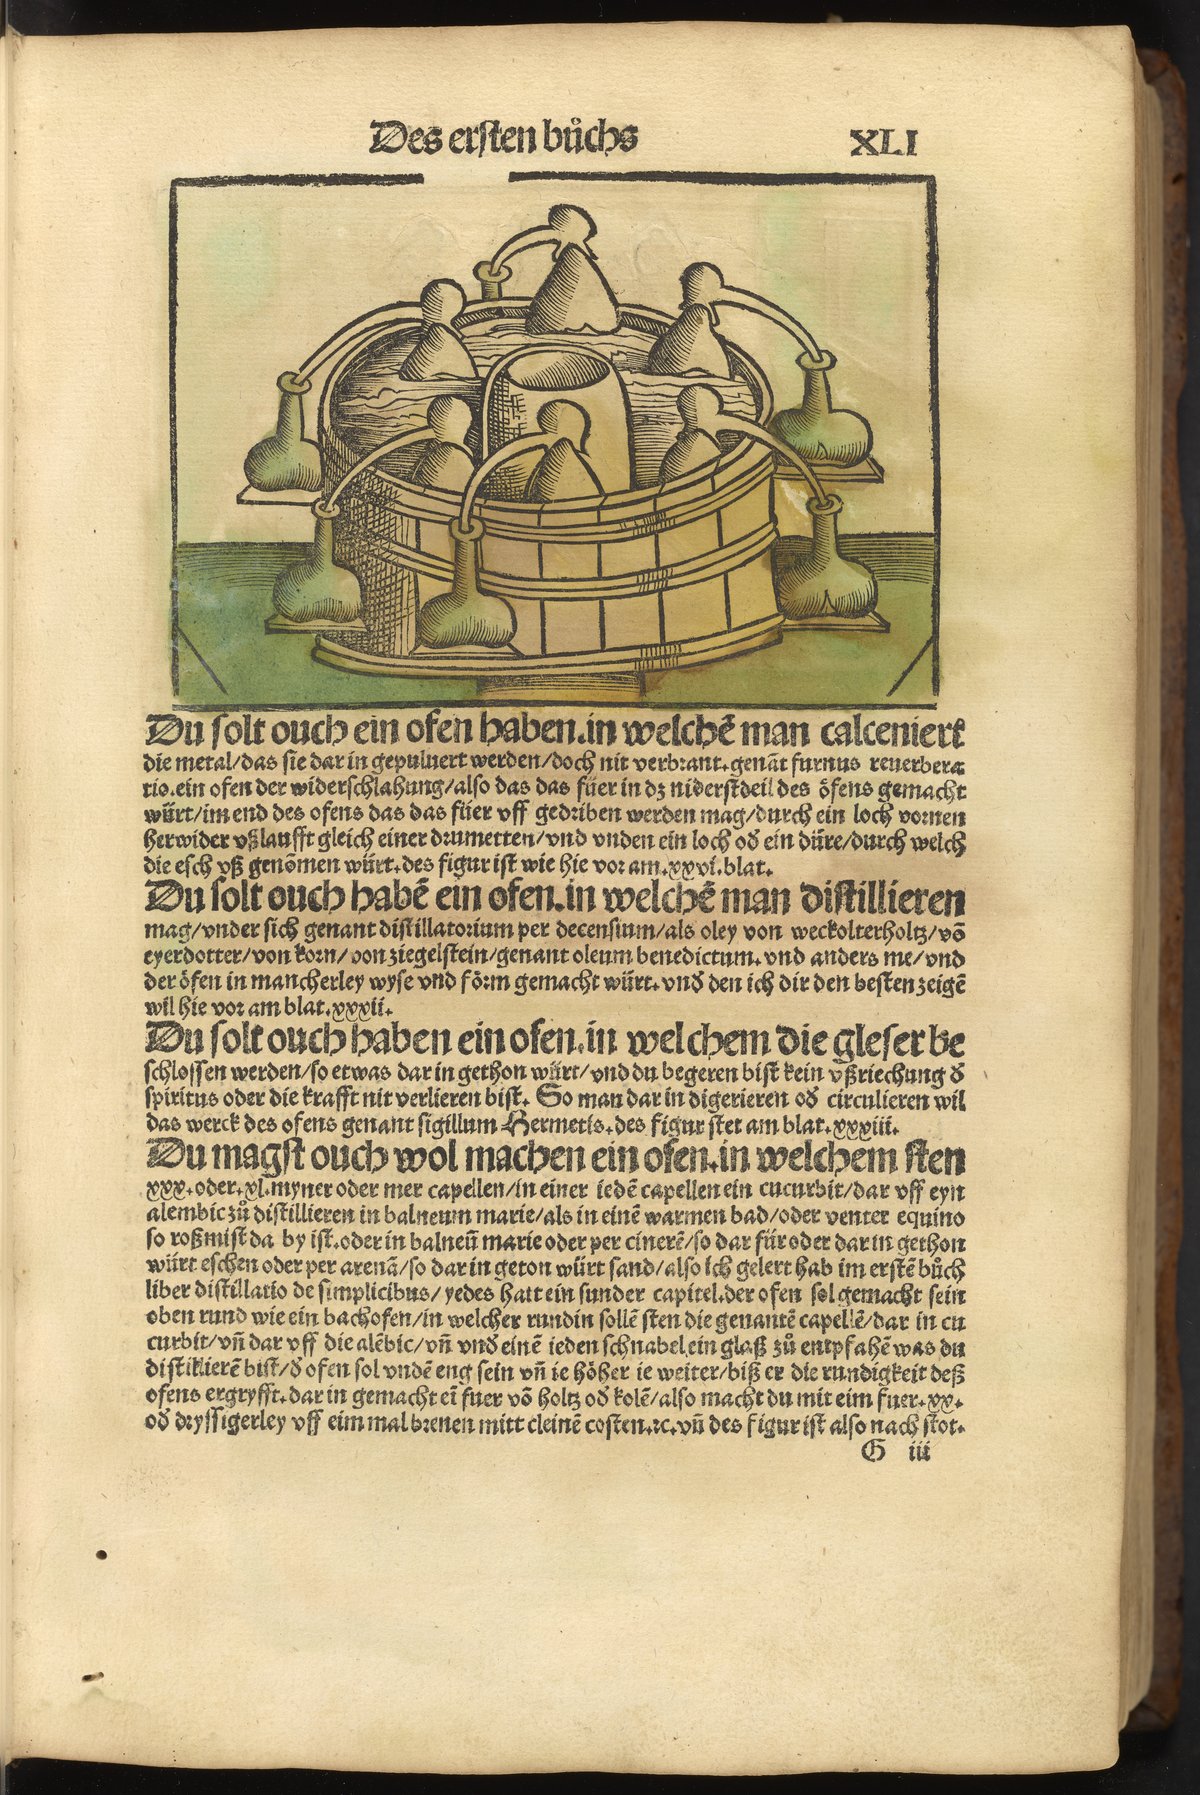 Des ersten bůchs
XLI
Du solt ouch ein ofen haben.in welchē man calceniert
die metal/das sie dar in gepuluert werden/doch nit verbrant.genāt furnus reuerbera
tio.ein ofen der widerschlahung/also das das füer in dz niderst deil des öfens gemacht
würt/im end des ofens das das füer vff gedriben werden mag/durch ein loch vornen
herwider vßlaufft gleich einer drumetten/vnd vnden ein loch oď ein düre/durch welch
die esch vß genōmen würt.des figur ist wie hie vor am.xxvi.blat.
Du solt ouch habē ein ofen.in welchē man distillieren
mag/vnder sich genant distillatorium per decensium/als oley von weckolterholtz/vō
eyerdotter/von korn/von ziegelstein/genant oleum benedictum.vnd anders me/vnd
der öfen in mancherley wyse vnd förm gemacht würt.vnď den ich dir den besten zeigē
wil hie vor am blat.xxxii.
Du solt ouch haben ein ofen.in welchem die gleser be
schlossen werden/so etwas dar in gethon würt/vnd du begeren bist kein vßriechung ď
spiritus oder die krafft nit verlieren bist. So man dar in digerieren oď circulieren wil
das werck des ofens genant sigillum Hermetis.des figur stet am blat.xxxiii.
Du magst ouch wol machen ein ofen.in welchem sten
xxx.oder.xl.myner oder mer capellen/in einer iedē capellen ein cucurbit/dar vff eyn
alembic zů distillieren in balneum marie/als in einē warmen bad/oder venter equino
so roßmist da by ist.oder in balneū marie oder per cinerē/so dar für oder dar in gethon
würt eschen oder per arenā/so dar in geton würt sand/also ich gelert hab im erstē bůch
liber distillatio de simplicibus/yedes hatt ein sunder capitel.der ofen sol gemacht sein
oben rund wie ein bachofen/in welcher rundin sollē sten die genantē capellē/dar in cu
curbit/vn̄ dar vff die alēbic/vn̄ vnď einē ieden schnabel ein glaß zů entpfahē was du
distiklierē bist/ď ofen sol vndē eng sein vn̄ ie höher ie weiter/biß er die rundigkeit deß
ofens ergryfft.dar in gemacht eī fuer vō holtz oď kolē/also macht du mit eim fuer.xx.
oď dryssigerley vff eim mal brenen mitt cleinē costen.ꝛc.vn̄ des figur ist also nach stot.
G iii